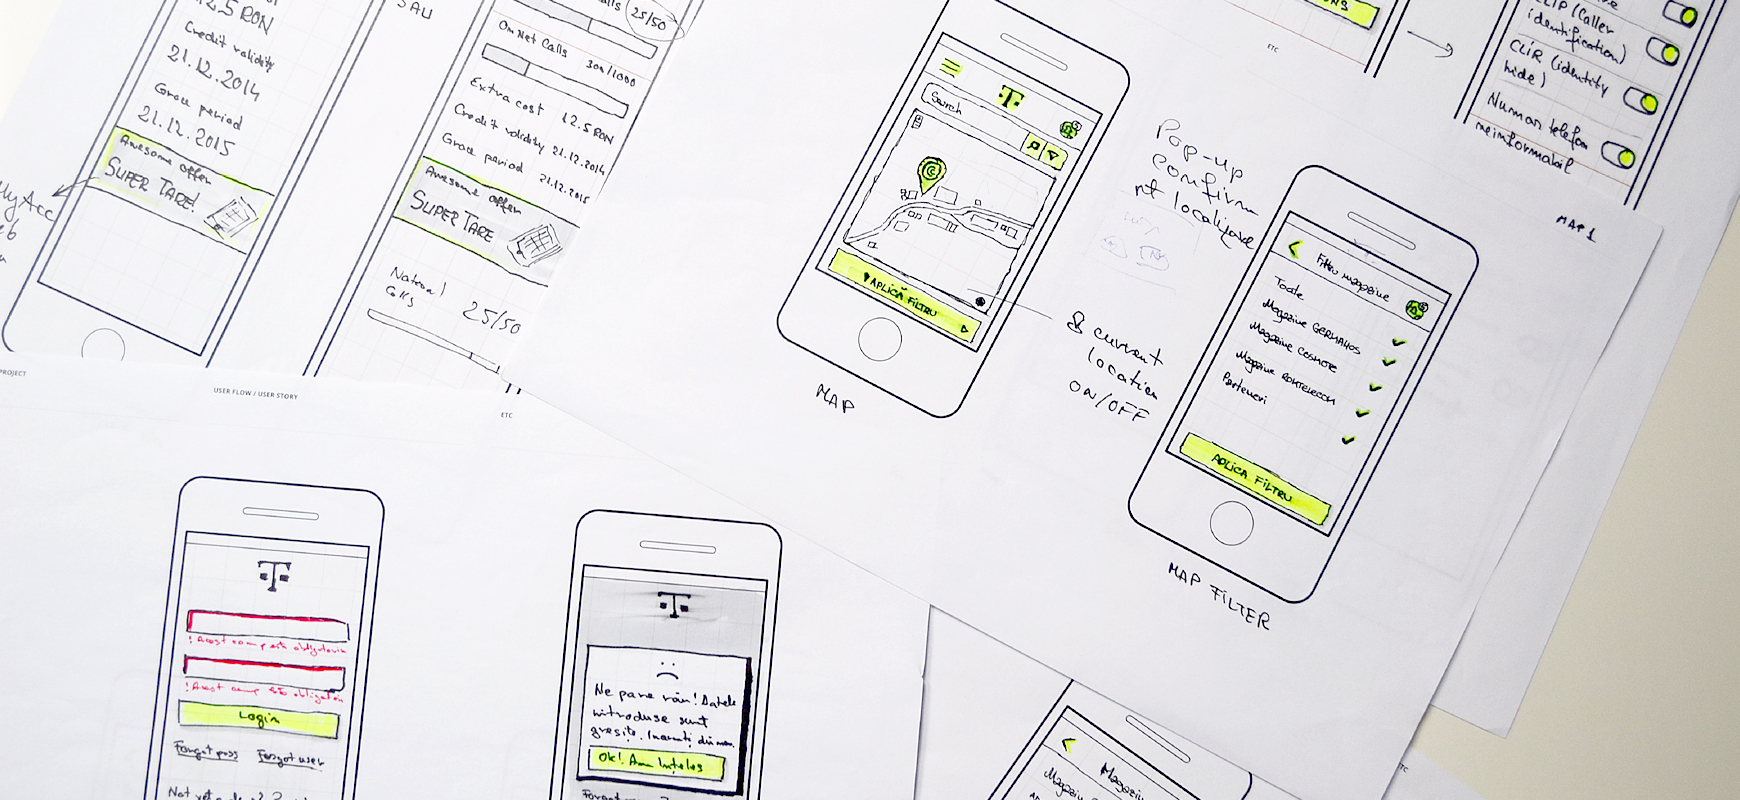 12.5 RON
Credit validity
21.12.2014
Grace period
21.12.2015
Awesome offer
SUPER TARE!
SAU
25/50
On Net Calls
300/1000
Extra cost 12.5 RON
Credit validity 21.12.2014
Grace period 21.12.2015
Awesome offer
SUPER TARE
National
Calls
25/50
PROJECT
USER FLOW / USER STORY
ETC
T
Search
APLICĂ FILTRU
MAP
Pop-up
confirm
pt localizare
& current
location
ON/OFF
ETC
CLIP (Caller
identification)
CLIR (identity
hide)
Numar telefon
neinformabil
MAP 1
Filtru magazine
Toate
Magazine GERMANOS
Magazine COSMOTE
Magazine ROMTELECOM
Parteneri
APLICA FILTRU
MAP FILTER
T
! Acest camp este obligatoriu
! Acest camp este obligatoriu
Login
Forgot pass Forgot user
T
Ne pare rău! Datele
introduse sunt
greșite. Incercați din nou.
Ok! Am înțeles
Magazine